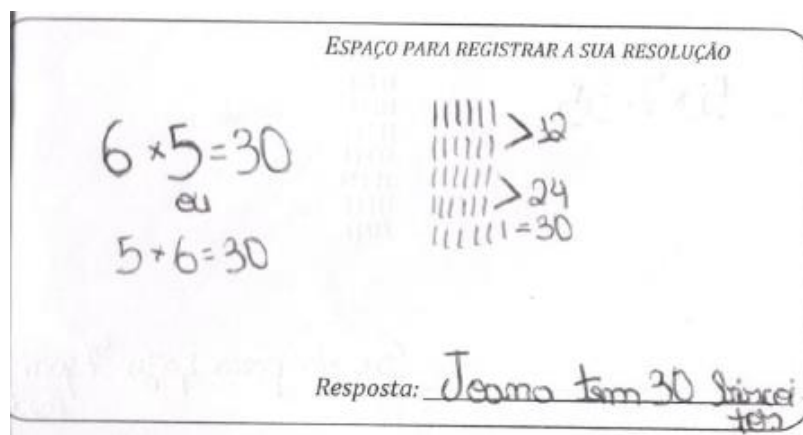 ESPAÇO PARA REGISTRAR A SUA RESOLUÇÃO
6 × 5 = 30
ou
5 × 6 = 30
> 12
> 24
= 30
Resposta: Joana tem 30